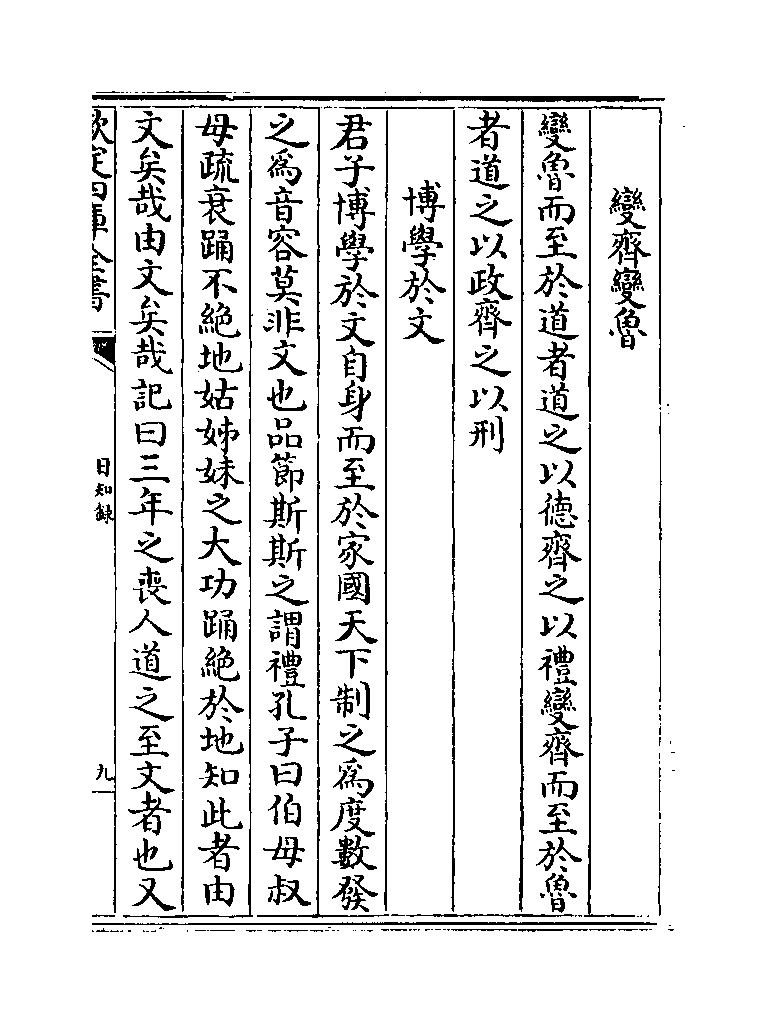 變齊變魯
變魯而至於道者道之以德齊之以禮變齊而至於魯
者道之以政齊之以刑
博學於文
君子博學於文自身而至於家國天下制之為度數發
之為音容莫非文也品節斯斯之謂禮孔子曰伯母叔
母疏衰踊不絕地姑姊妹之大功踊絕於地知此者由
文矣哉由文矣哉記曰三年之喪人道之至文者也又
欽定四庫全書
日知錄
九